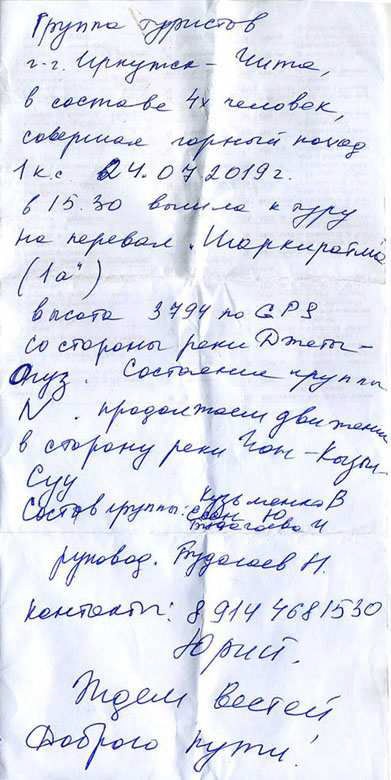 Группа туристов
г-г. Иркутск - Чита,
в составе 4х человек,
совершая горный поход
1 к.с 24.07.2019г.
в 15.30 вышла к туру
на перевал "Шаркыратма
(1а")
высота 3794 по GPS
со стороны реки Джеты-
Огуз. Состояние группы
N. продолжаем движение
в сторону реки Чон-Кызыл-
Суу
Состав группы: Кузьменко В
Ю
И
руковод. Будагаев Н.
контакты: 8 914 4681530
Юрий.
Ждем вестей
Доброго пути!